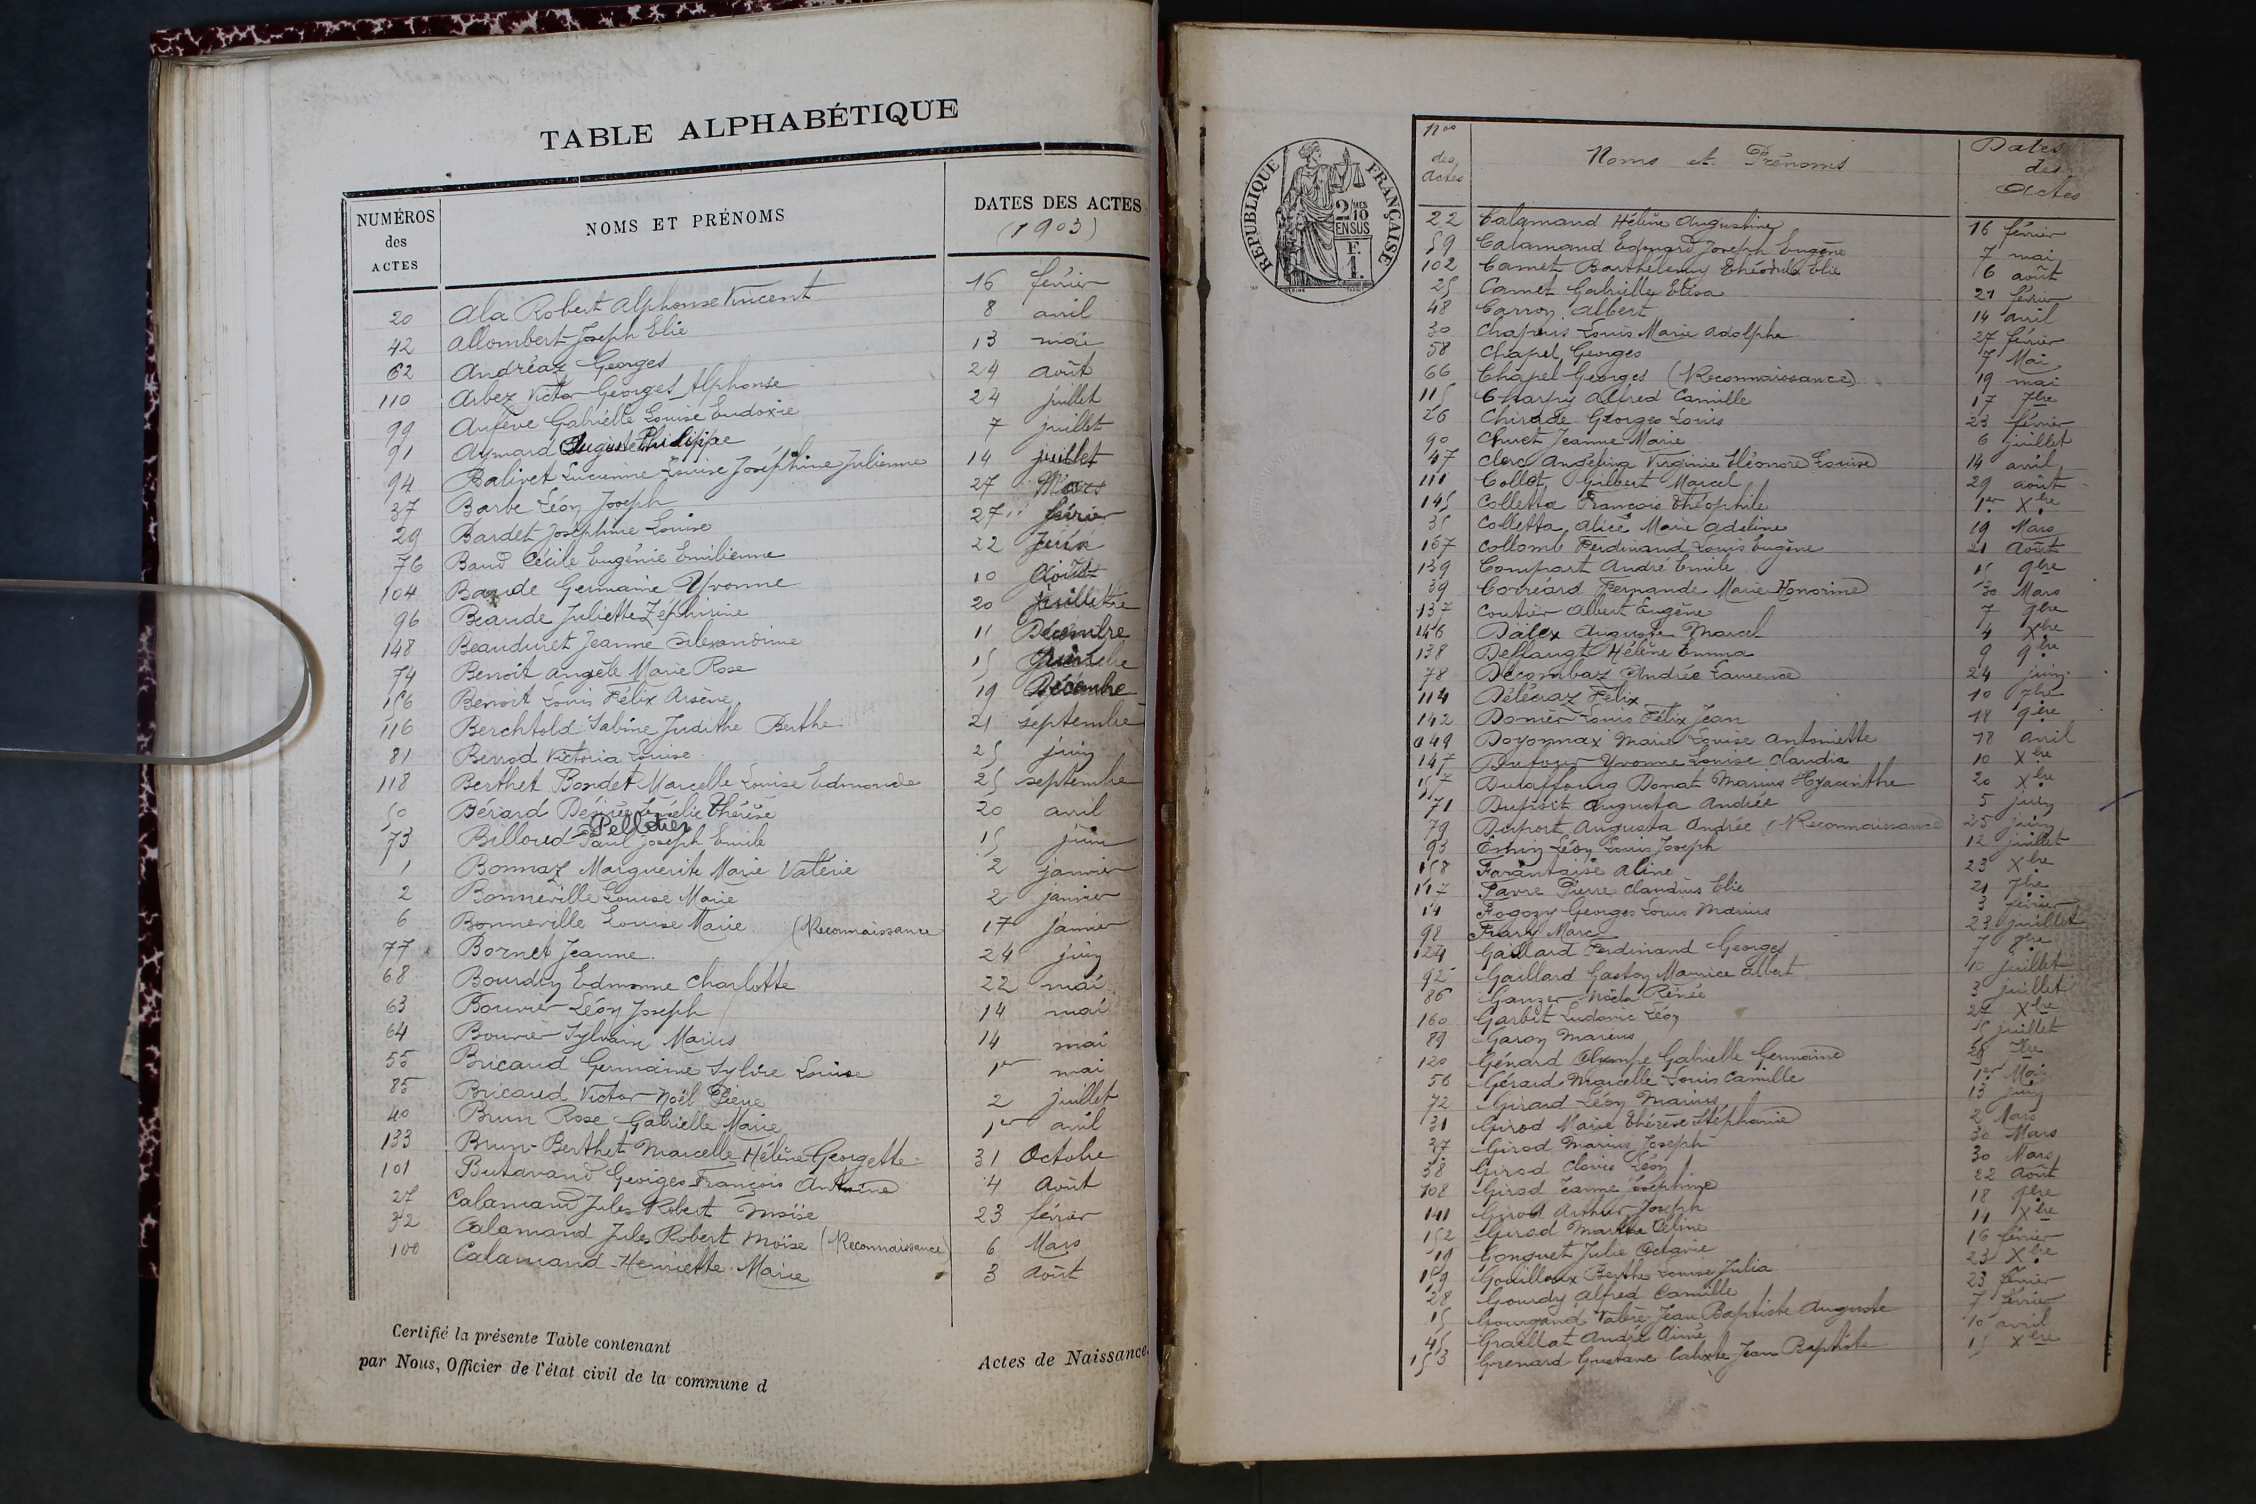 TABLE ALPHABÉTIQUE
NUMÉROS des ACTES NOMS ET PRÉNOMS DATES DES ACTES (1903)
20 Ala Robert Alphonse Vincent 16 février
42 Allombert Joseph Elie 8 avril
62 Andréaz Georges 13 mai
110 Arbez Victor Georges Alphonse 24 août
99 Aufève Gabrielle Louise Eudoxie 24 juillet
91 Aymard Auguste Philippe 7 juillet
94 Balivet Lucienne Louise Joséphine Julienne 14 juillet
37 Barbe Léon Joseph 27 Mars
29 Bardet Joséphine Louise 27 février
76 Baud Cécile Eugénie Emilienne 22 Juin
104 Baude Germaine Yvonne 10 Août
96 Beaude Juliette Zéphirine 20 juillet
148 Beauduret Jeanne Alexandrine 11 Décembre
74 Benoit Angèle Marie Rose 15
156 Benoit Louis Félix Arsène 19 Décembre
116 Berchtold Sabine Judithe Berthe 21 septembre
81 Berrod Victoria Louise 25 juin
118 Berthet Bondet Marcelle Louise Edmonde 25 septembre
50 Bérard Désirée Emélie Thérèse 20 avril
73 Billoud Pelletier Paul Joseph Emile 15 juin
1 Bonnaz Marguerite Marie Valérie 2 janvier
2 Bonneville Louise Marie 2 janvier
6 Bonneville Louise Marie (Reconnaissance 17 janvier
77 Bornet Jeanne 24 juin
68 Bourdin Edmonne Charlotte 22 mai
63 Bouvier Léon Joseph 14 mai
64 Bouvier Sylvain Marius 14 mai
55 Bricaud Germaine Sylvie Louise 1er mai
85 Bricaud Victor Noël Pierre 2 juillet
40 Brun Rose Gabrielle Marie 1er avril
133 Brun-Berthet Marcelle Hélène Georgette 31 Octobre
101 Butavand Georges François Antoine 4 Août
27 Calamand Jules Robert Moïse 23 février
32 Calamand Jules Robert Moïse (Reconnaissance) 6 Mars
100 Calamand Henriette Marie 3 Août
Certifié la présente Table contenant Actes de Naissance,
par Nous, Officier de l'état civil de la commune d
RÉPUBLIQUE FRANÇAISE
2/10 MES EN SUS
F. 1.
Nos des Actes Noms et Prénoms Dates des Actes
22 Calamand Hélène Augustine 16 février
59 Calamand Edouard Joseph Eugène 7 mai
102 Camet Barthélemy Théodule Elie 6 août
25 Carnet Gabrielle Elisa 21 février
48 Carron Albert 14 avril
30 Chapuis Louis Marie Adolphe 27 février
58 Chapel Georges 7 Mai
66 Chapel Georges (Reconnaissance) 19 mai
115 Charpy Alfred Camille 17 7bre
26 Chirade Georges Louis 23 février
90 Chuet Jeanne Marie 6 juillet
47 Clerc Angelina Virginie Eléonore Louise 14 avril
111 Collet Gilbert Marcel 29 août
145 Colletta François Théophile 1er Xbre
35 Colletta Alice Marie Adeline 19 Mars
107 Collomb Ferdinand Louis Eugène 21 Août
139 Compart André Emile 15 9bre
39 Corréard Fernande Marie Honorine 30 Mars
137 Coutier Albert Eugène 7 9bre
146 Dalex Auguste Marcel 4 Xbre
138 Deffaugt Hélène Emma 9 9bre
78 Décombaz Andrée Laurence 24 juin
114 Délécraz Félix 10 7bre
142 Domer Louis Félix Jean 18 9bre
49 Doyonnax Marie Louise Antoinette 18 avril
147 Dufour Yvonne Louise Claudia 10 Xbre
157 Dutaffourg Donat Marius Hyacinthe 20 Xbre
71 Dupoit Augusta Andrée 5 juin
79 Duport Augusta Andrée (Reconnaissance 25 juin
93 Emin Léon Louis Joseph 12 juillet
158 Farantaise Aline 23 Xbre
117 Favre Pierre Claudius Elie 21 7bre
14 Fogozy Georges Louis Marius 3 février
98 Frary Marc 23 juillet
124 Gaillard Ferdinand Georges 7 8bre
92 Gaillard Gaston Maurice Albert 10 juillet
86 Ganzer Noëla Renée 3 juillet
160 Garbit Ludovic Léon 27 Xbre
89 Garon Marius 5 juillet
120 Génard Olympe Gabrielle Germaine 28 7bre
56 Gérard Marcelle Louis Camille 1er Mai
72 Girard Léon Marius 13 juin
31 Girod Marie Thérèse Stéphanie 2 Mars
37 Girod Marius Joseph 30 Mars
38 Girod Clovis Léon 30 Mars
108 Girod Jeanne Joséphine 22 Août
141 Girod Arthur Joseph 18 9bre
152 Girod Marthe Céline 11 Xbre
19 Gonguet Julie Octavie 16 février
159 Gouilloux Berthe Louise Julia 23 Xbre
28 Gourdy Alfred Camille 23 février
15 Gourgand Valère Jean Baptiste Auguste 7 février
45 Graillat André Aimé 10 avril
153 Grenard Gustave Calixte Jean Baptiste 15 Xbre